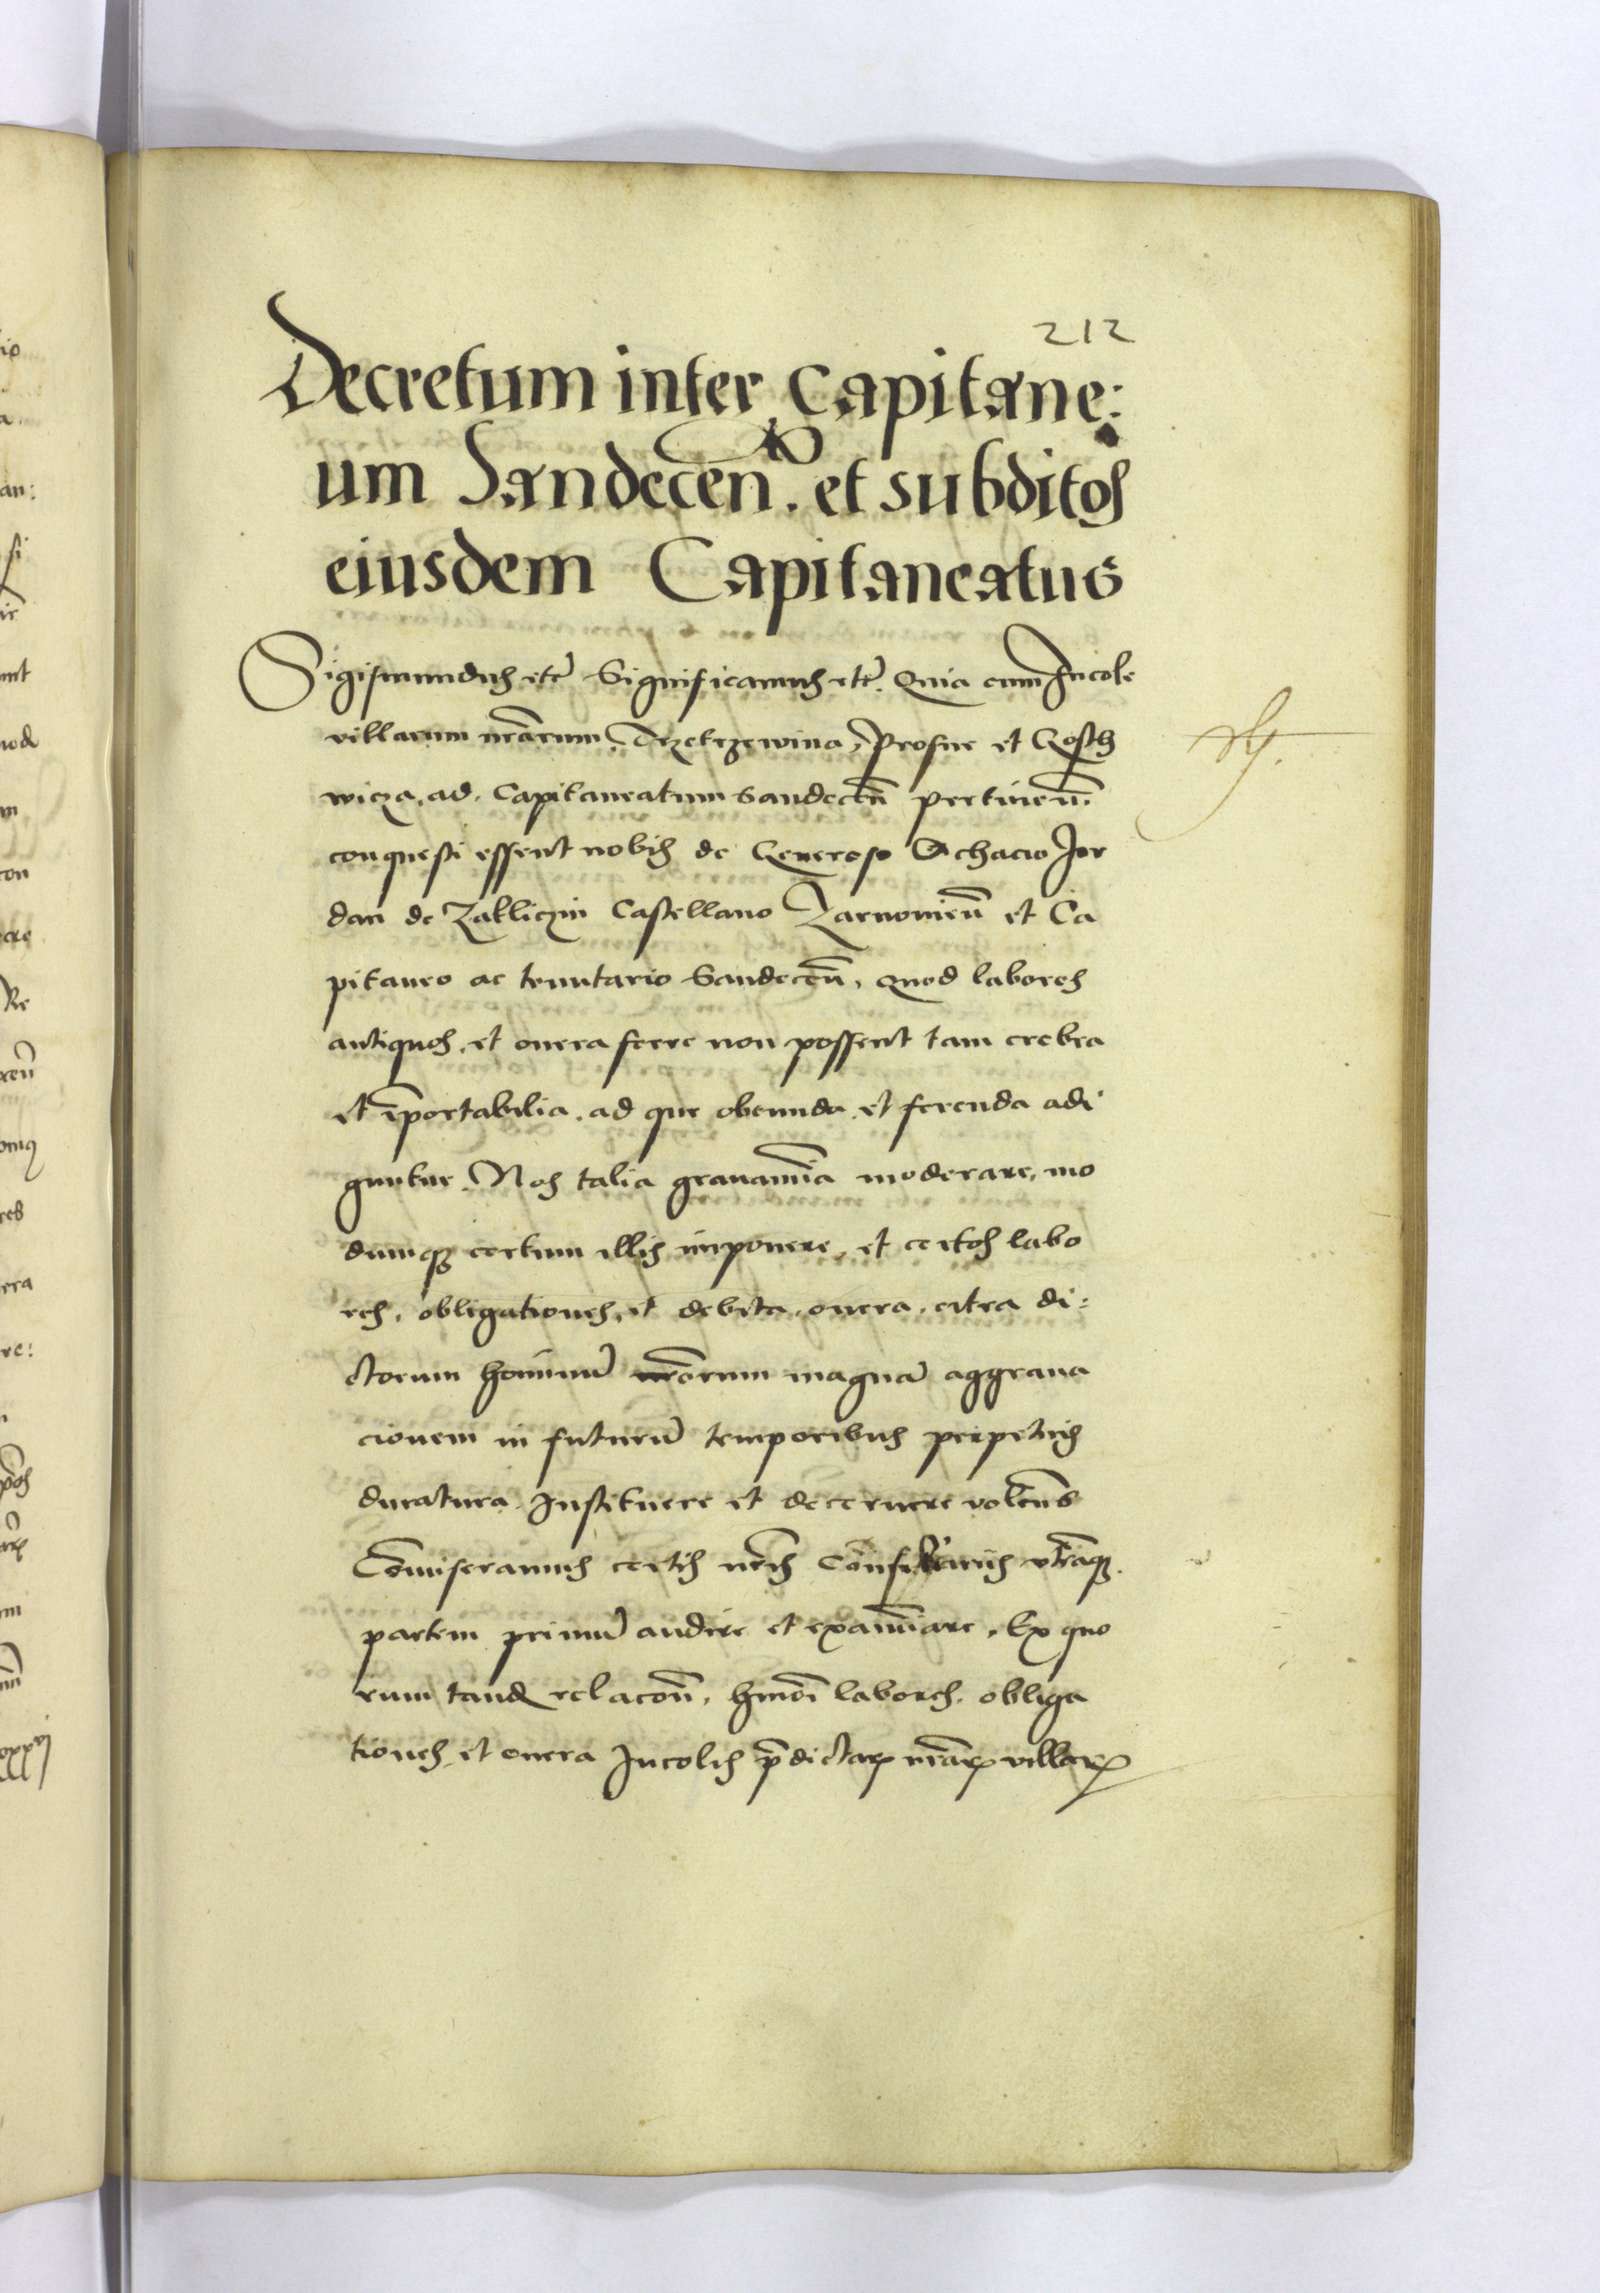 212
Decretum inter Capitane:
um Sandecen̄. et subditos
eiusdem Capitaneatus
Sigismundus etc̃ Significamus etc̃. Quia cum Incole
villarum nr̃arum, Trzetrzewina, Prosne et Gosth
wicza, ad Capitaneatum Sandecen̄ pertinen̄.
conquesti essent nobis de Generoso Achacio Jor
dan de Zakliczin Castellano Zarnowien̄ et Ca
pitaneo ac tenutario Sandecen̄, quod labores
antiquos, et onera ferre non possent tam crebra
et īportabilia, ad que obeunda et ferenda adi
guntur. Nos talia grauamīa moderare, mo
dumq3 certum illis imponere, et certos labo
res, obligationes, et debita onera, citra di:
ctorum hominū nr̃orum magnā aggraua
cionem in futurū temporibus perpetuis
duratura Instituere et decernere volen̄s
Com̄iseramus certis nr̃is Consiliariis vtrāq3
partem primū audire et examīare, Ex quo
rum tandē relacōn̄, hmōi labores, obliga
tiones et onera Incolis p̄dictaꝝ nr̃aꝝ villaꝝ